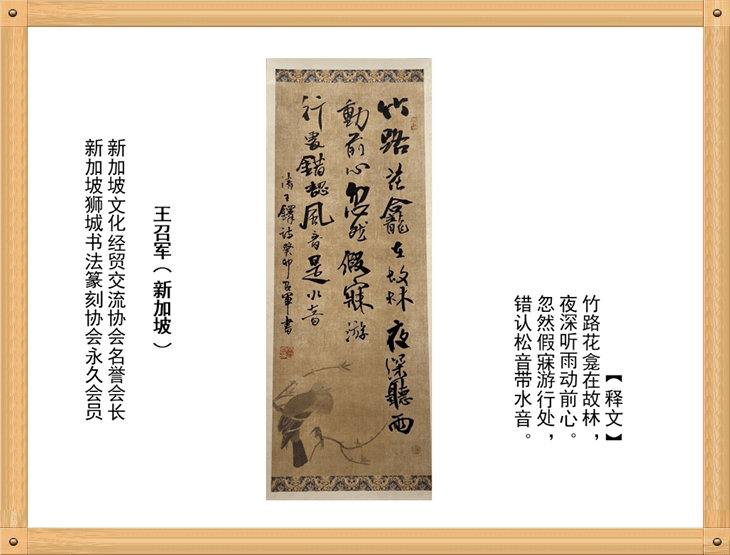 【释文】
竹路花龛在故林，
夜深听雨动前心。
忽然假寐游行处，
错认松音带水音。
竹路花龕在故林夜深聽雨
動前心忽然假寐游
行處錯認風音是水音
清王鐸詩癸卯召軍書
王召军（新加坡）
新加坡文化经贸交流协会名誉会长
新加坡狮城书法篆刻协会永久会员